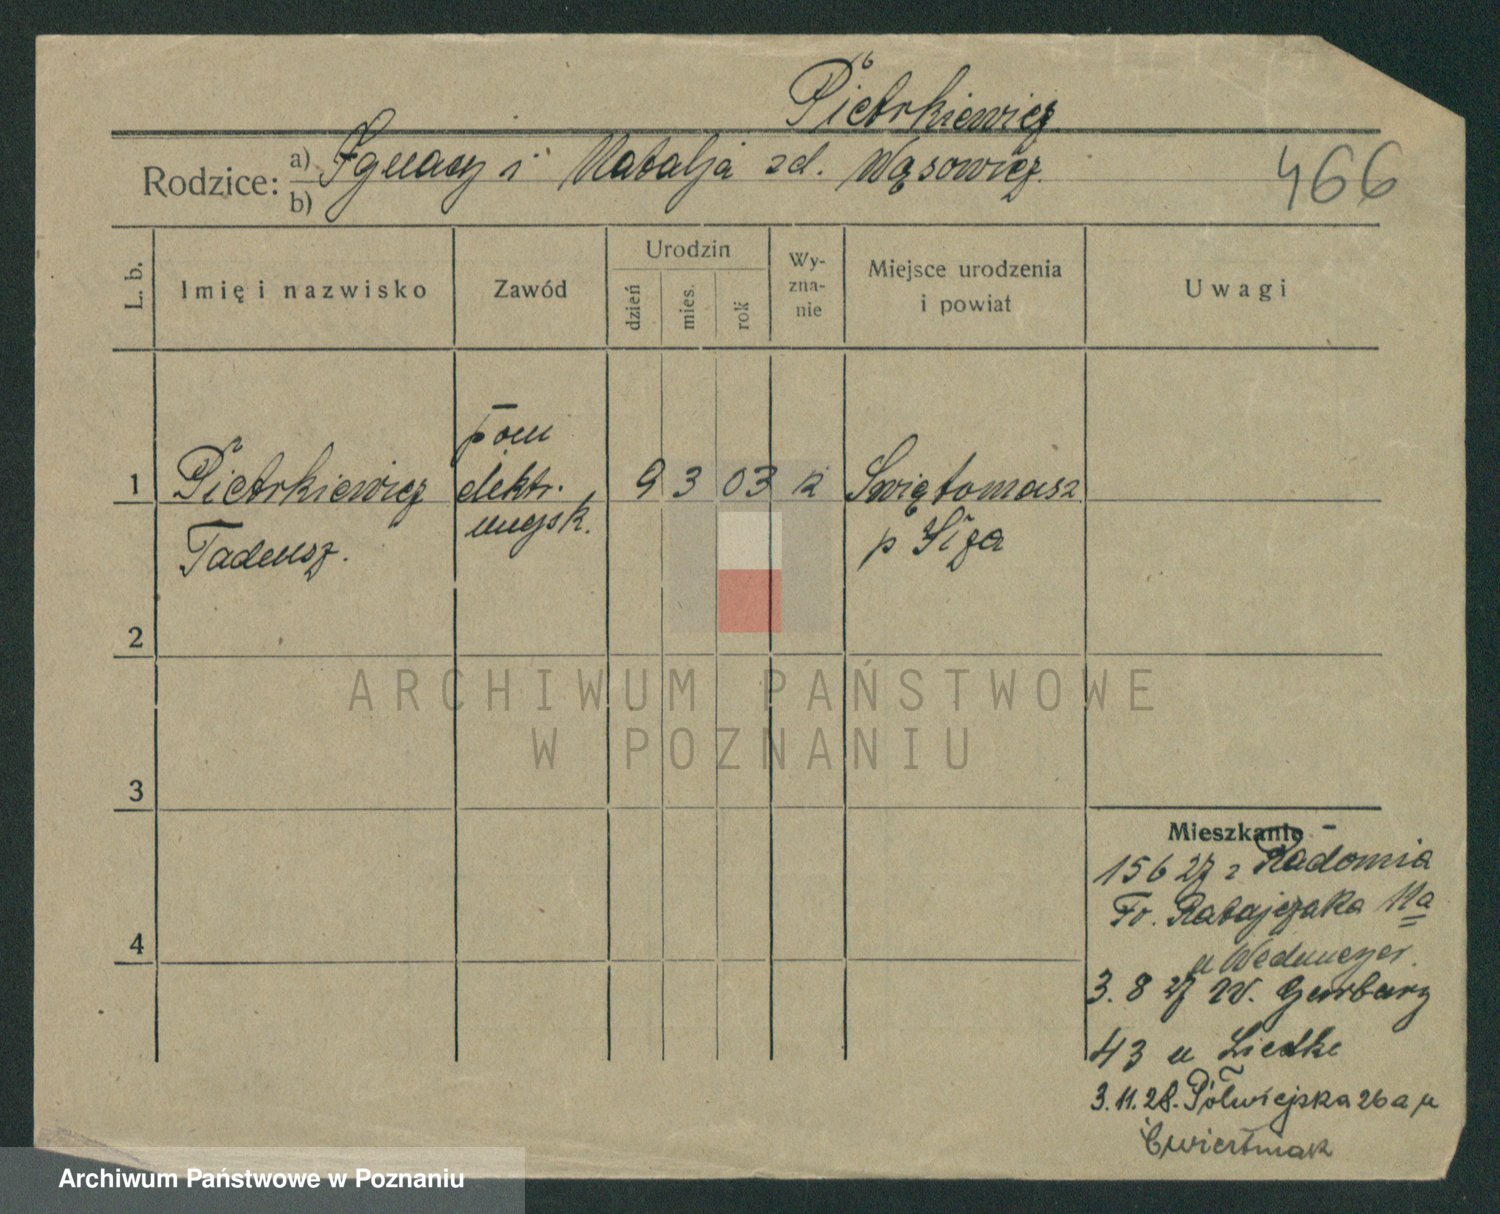 Pietrkiewicz
Rodzice: a) Ignacy i Natalja zd. Wąsowicz
b)
466
L. b.
Imię i nazwisko
Zawód
Urodzin
dzień
mies.
rok
Wy-
zna-
nie
Miejsce urodzenia
i powiat
Uwagi
1
Pietrkiewicz
Tadeusz.
pom
elektr.
miejsk.
9 3 03
k
Świętomasz
p
2
3
4
ARCHIWUM PAŃSTWOWE
W POZNANIU
Mieszkanie
15 6 27 z Radomia
Fr. Ratajczaka 11a
u
3. 8 27 W. Garbary
43 u Liedke
3.11.28. Półwiejska 26a u
Ćwiertniak
Archiwum Państwowe w Poznaniu